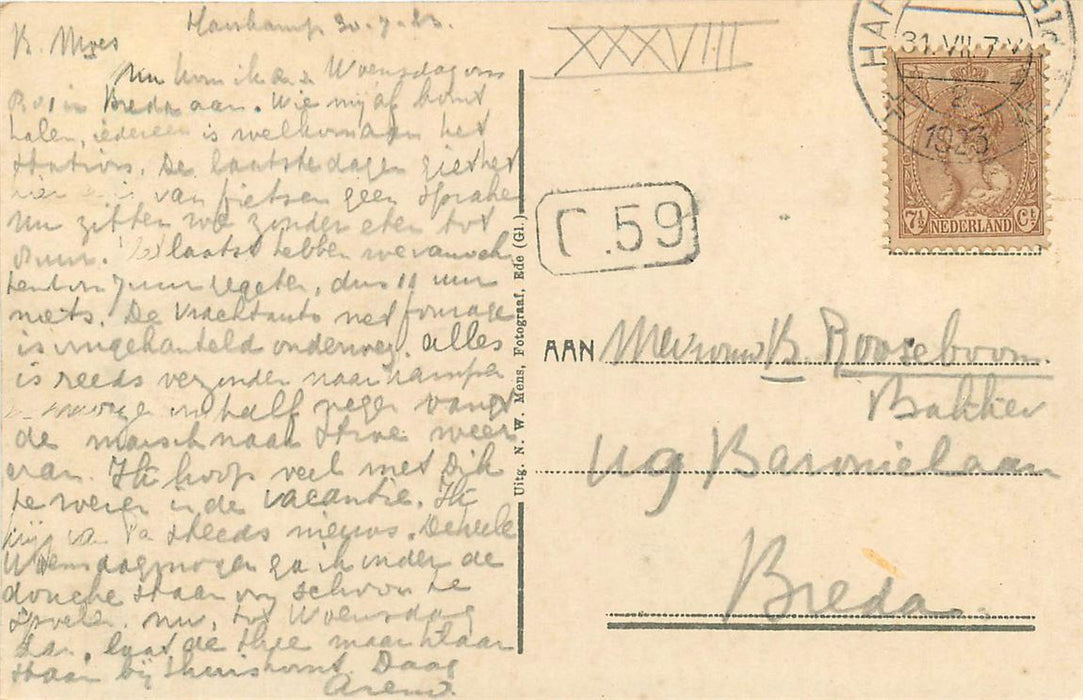 Harskamp 30-7-23.
B. Moes
Nu kom ik a.s. Woensdag om
in Breda aan. Wie mij af komt
halen, iedereen is welkom aan het
station. De laatste dagen giet het
hier van fietsen geen sprake
Nu zitten we zonder eten tot
uur. 't laatst hebben we vanoch
tend om 7 uur gegeten, dus 11 uur
niets. De vrachtauto met fourage
is omgekanteld onderweg. alles
is reeds verzonden naar kampen
morgen om half negen vangt
de marsch naar Stroe weer
aan. Ik hoop veel met Dik
te weren in de vacantie. Ik
krijg van Pa steeds nieuws. De heele
Woensdagmorgen ga ik onder de
douche staan om schoon te
spoelen. Nu, tot Woensdag
dan, laat de thee maar klaar
staan bij thuiskomst. Daag
Arend.
XXXVIII
HA
31.VII.7.V
1923
7½ NEDERLAND Ct
C.59
Uitg. N. W. Mens, Fotograaf, Ede (Gl.)
AAN Mevrouw B. Rooseboom
Bakker
119 Baronielaan
Breda.